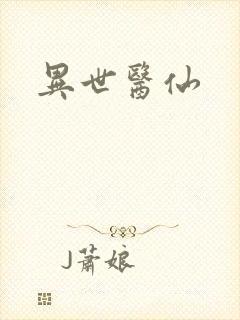 異世醫仙
J蕭娘